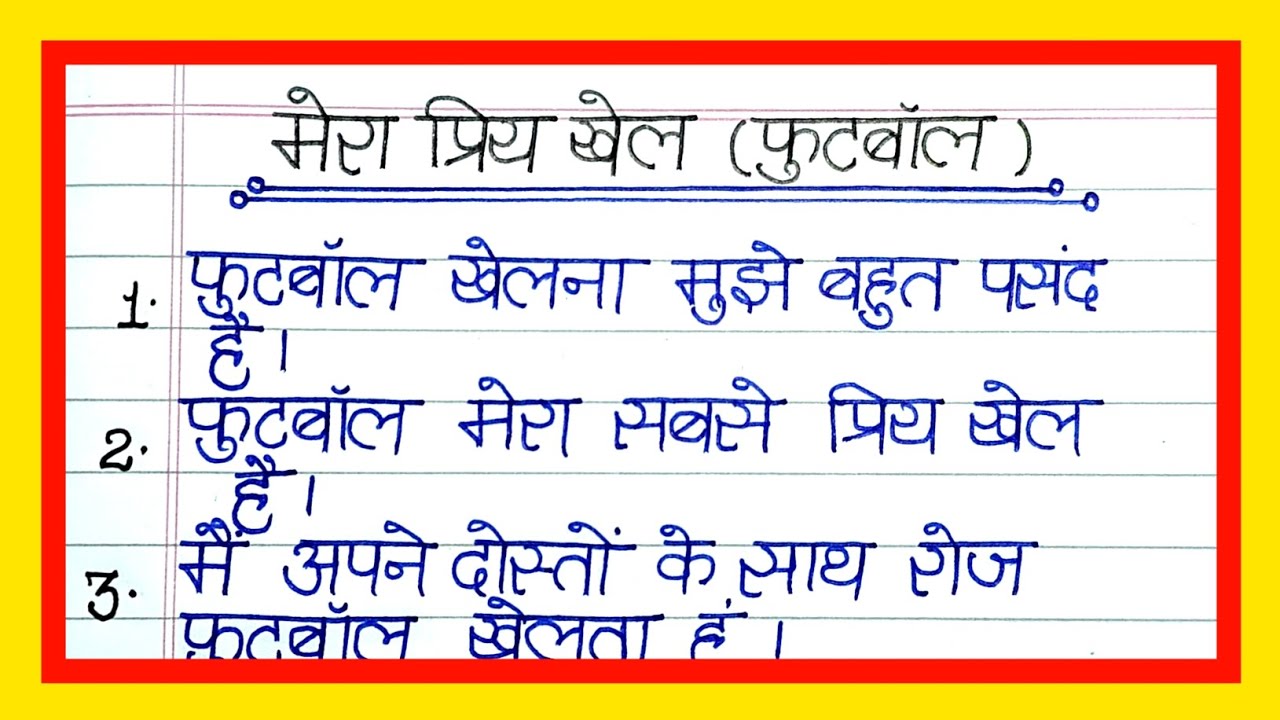 मेरा प्रिय खेल (फुटबॉल)
1. फुटबॉल खेलना मुझे बहुत पसंद
है।
2. फुटबॉल मेरा सबसे प्रिय खेल
है।
3. मैं अपने दोस्तों के साथ रोज
फुटबॉल खेलता हूं।